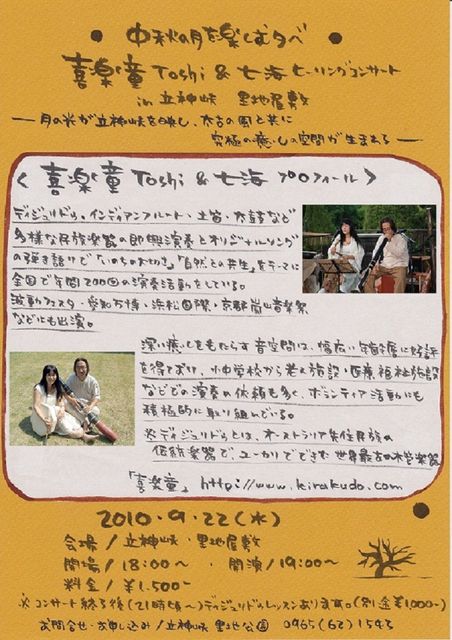 中秋の月を楽しむ夕べ
喜楽童Toshi & 七海ヒーリングコンサート
in 立神峡 里地屋敷
―月の光が立神峡を映し、太古の風と共に
究極の癒しの空間が生まれる―
〈喜楽童Toshi & 七海 プロフィール〉
ディジュリドゥ、インディアンフルート・土笛・太鼓など
多様な民族楽器の即興演奏とオリジナルソング
の弾き語りで「いのちの大切さ」「自然との共生」をテーマに
全国で年間200回の演奏活動をしている。
波動フェスタ・愛知万博・浜松国際・京都嵐山音楽祭
などにも出演。
深い癒しをもたらす音空間は、幅広い年齢層に好評
を得ており、小中学校から老人施設・医療福祉施設
などでの演奏の依頼も多く、ボランティア活動にも
積極的に取り組んでいる。
※ディジュリドゥとは、オーストラリア先住民族の
伝統楽器で、ユーカリでできた世界最古の木管楽器
「喜楽童」 http://www.kirakudo.com
2010.9.22(水)
会場/立神峡・里地屋敷
開場/18:00～ ・開演/19:00～
料金/¥1,500-
※コンサート終了後(21時頃～)ディジュリドゥレッスンあります。(別途¥1,000-)
お問合せ・お申し込み/立神峡里地公園 0965(62)1543